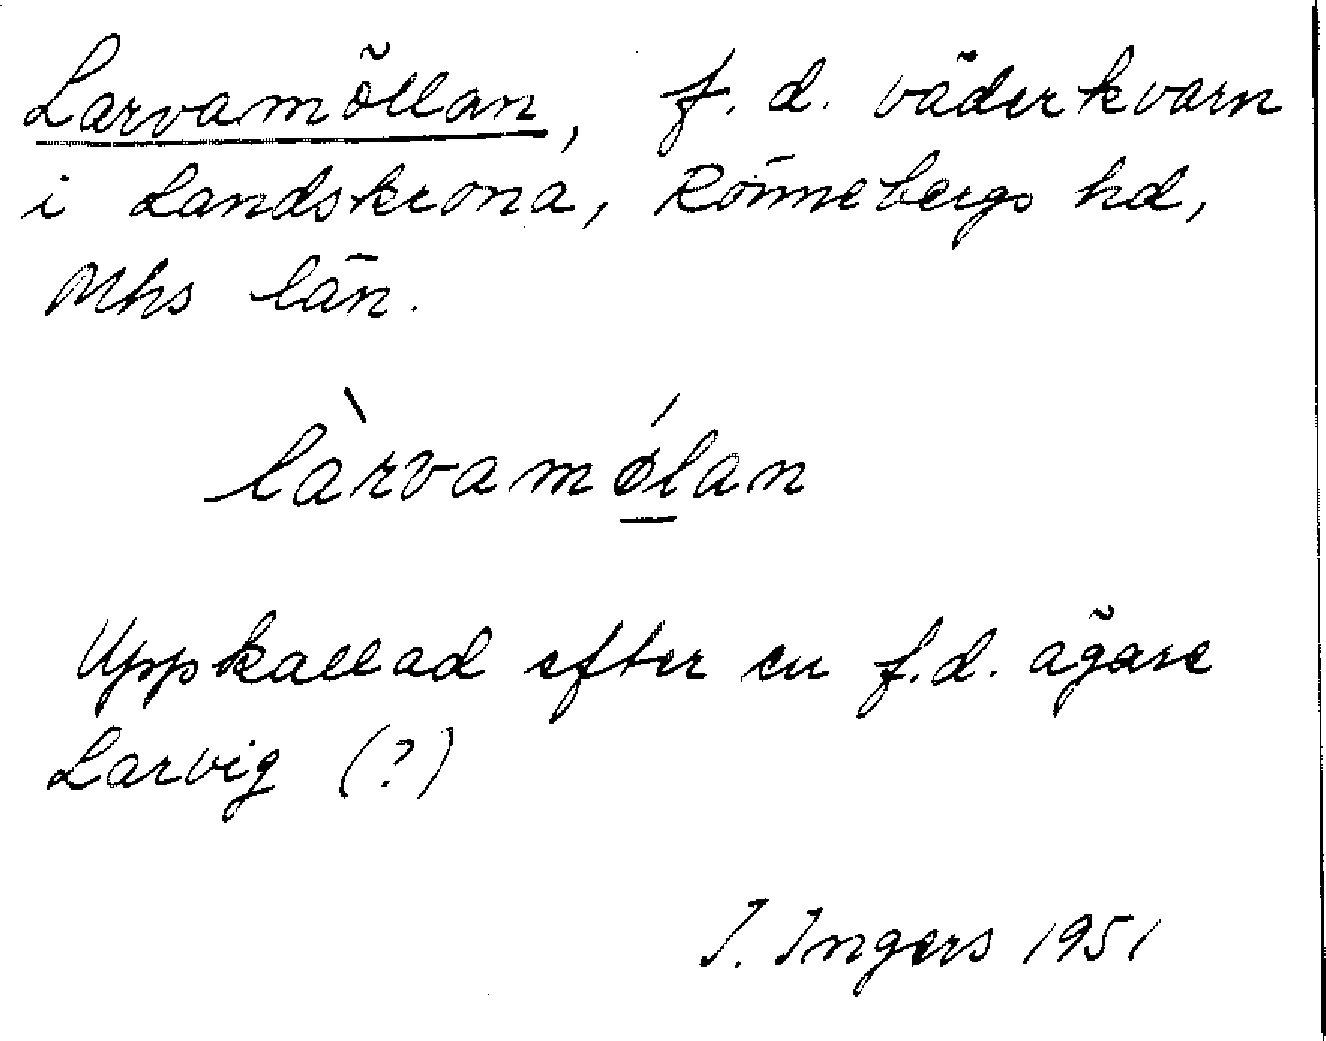 Larvamöllan, f. d. väderkvarn
i Landskrona, Rönnebergs hd,
Mhs län.
làrvamǿlan
Uppkallad efter en f.d. ägare
Larvig (?)
I. Ingers 1951